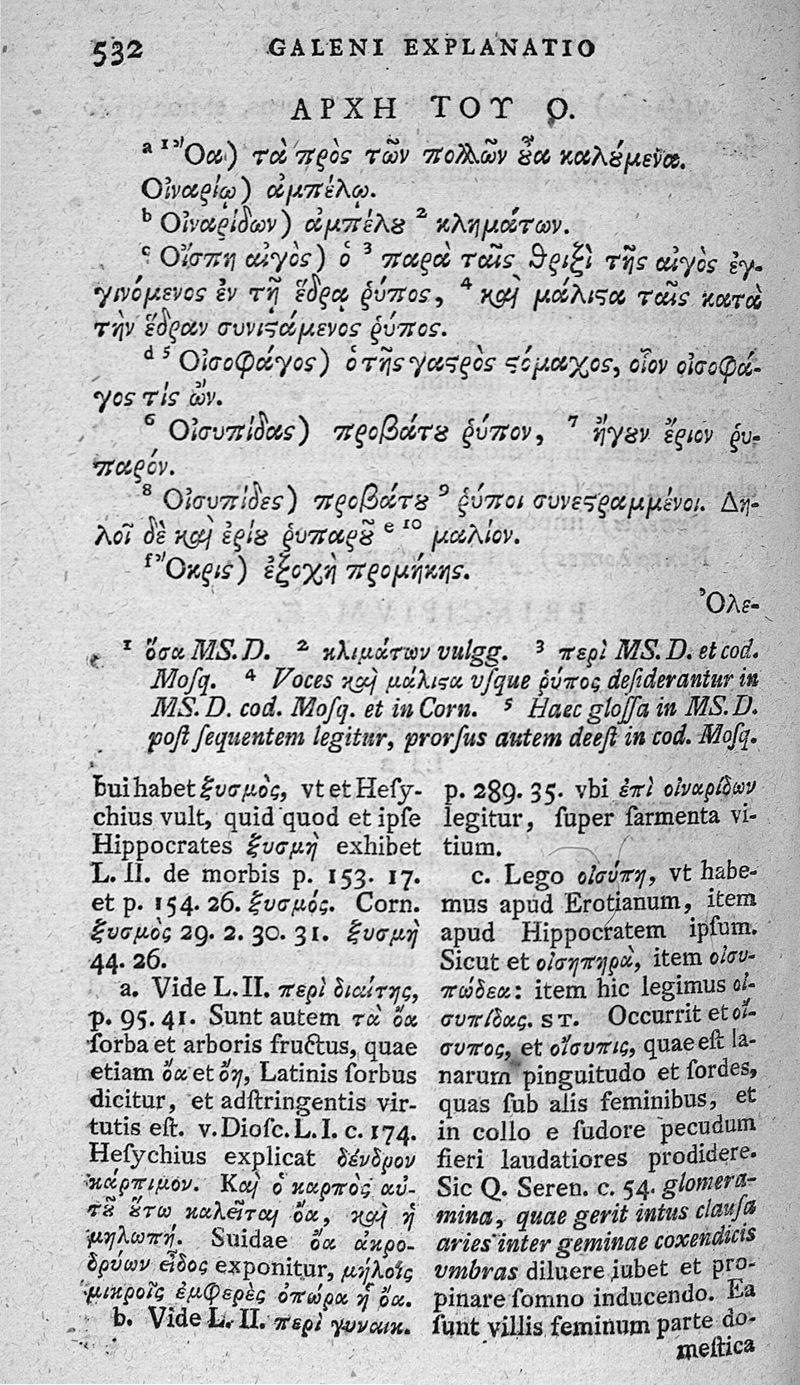 532 GALENI EXPLANATIO
ΑΡΧΗ ΤΟΥ Ο.
a 1 Ὄα) τὰ πρὸς τῶν πολλῶν ȣ̓͂α καλȣ́μενα.
Οἰναρίῳ) ἀμπέλῳ.
b Οἰναρίδων) ἀμπέλȣ 2 κλημάτων.
c Οἴσπη αἰγὸς) ὁ 3 παρὰ ταῖς θριξὶ τῆς αἰγὸς ἐγ-
γινόμενος ἐν τῇ ἕδρᾳ ῥύπος, 4 καὶ μάλιϛα ταῖς κατὰ
τὴν ἕδραν συνιϛάμενος ῥύπος.
d 5 Οἰσοφάγος) ὁ τῆς γαϛρὸς ϛόμαχος, οἷον οἰσοφά-
γος τὶς ὤν.
6 Οἰσυπίδας) προβάτȣ ῥύπον, 7 ἤγȣν ἔριον ῥυ-
παρόν.
8 Οἰσυπίδες) προβάτȣ 9 ῥύποι συνεϛραμμένοι. Δη-
λοῖ δὲ καὶ ἐρίȣ ῥυπαρȣ͂ e 10 μαλίον.
f Ὄκρις) ἐξοχὴ προμήκης.
Ὀλε-
1 ὅσα MS. D. 2 κλιμάτων vulgg. 3 περὶ MS. D. et cod.
Moſq. 4 Voces καὶ μάλιϛα vſque ῥύπος deſiderantur in
MS. D. cod. Moſq. et in Corn. 5 Haec gloſſa in MS. D.
poſt ſequentem legitur, prorſus autem deeſt in cod. Moſq.
bui habet ξυσμὸς, vt et Heſy-
chius vult, quid quod et ipſe
Hippocrates ξυσμὴ exhibet
L. II. de morbis p. 153. 17.
et p. 154. 26. ξυσμός. Corn.
ξυσμὸς 29. 2. 30. 31. ξυσμὴ
44. 26.
a. Vide L. II. περὶ διαίτης,
p. 95. 41. Sunt autem τὰ ὄα
ſorba et arboris fructus, quae
etiam ὄα et ὄη, Latinis ſorbus
dicitur, et adſtringentis vir-
tutis eſt. v. Dioſc. L. I. c. 174.
Heſychius explicat δένδρον
κάρπιμον. Καὶ ὁ καρπὸς αὐ-
τȣ͂ ȣ̔́τω καλεῖται ὄα, καὶ ἡ
μηλωπή. Suidae ὄα ἀκρο-
δρύων εἶδος exponitur, μήλοις
μικροῖς ἐμφερὲς ὀπώρα ἡ ὄα.
b. Vide L. II. περὶ γυναικ.
p. 289. 35. vbi ἐπὶ οἰναρίδων
legitur, ſuper ſarmenta vi-
tium.
c. Lego οἰσύπη, vt habe-
mus apud Erotianum, item
apud Hippocratem ipſum.
Sicut et οἰσηπηρὰ, item οἰσυ-
πώδεα: item hic legimus οἰ-
συπίδας. ST. Occurrit et οἴ-
συπος, et οἴσυπις, quae eſt la-
narum pinguitudo et ſordes,
quas ſub alis feminibus, et
in collo e ſudore pecudum
fieri laudatiores prodidere.
Sic Q. Seren. c. 54. glomera-
mina, quae gerit intus clauſa
aries inter geminae coxendicis
vmbras diluere iubet et pro-
pinare ſomno inducendo. Ea
ſunt villis feminum parte do-
meſtica